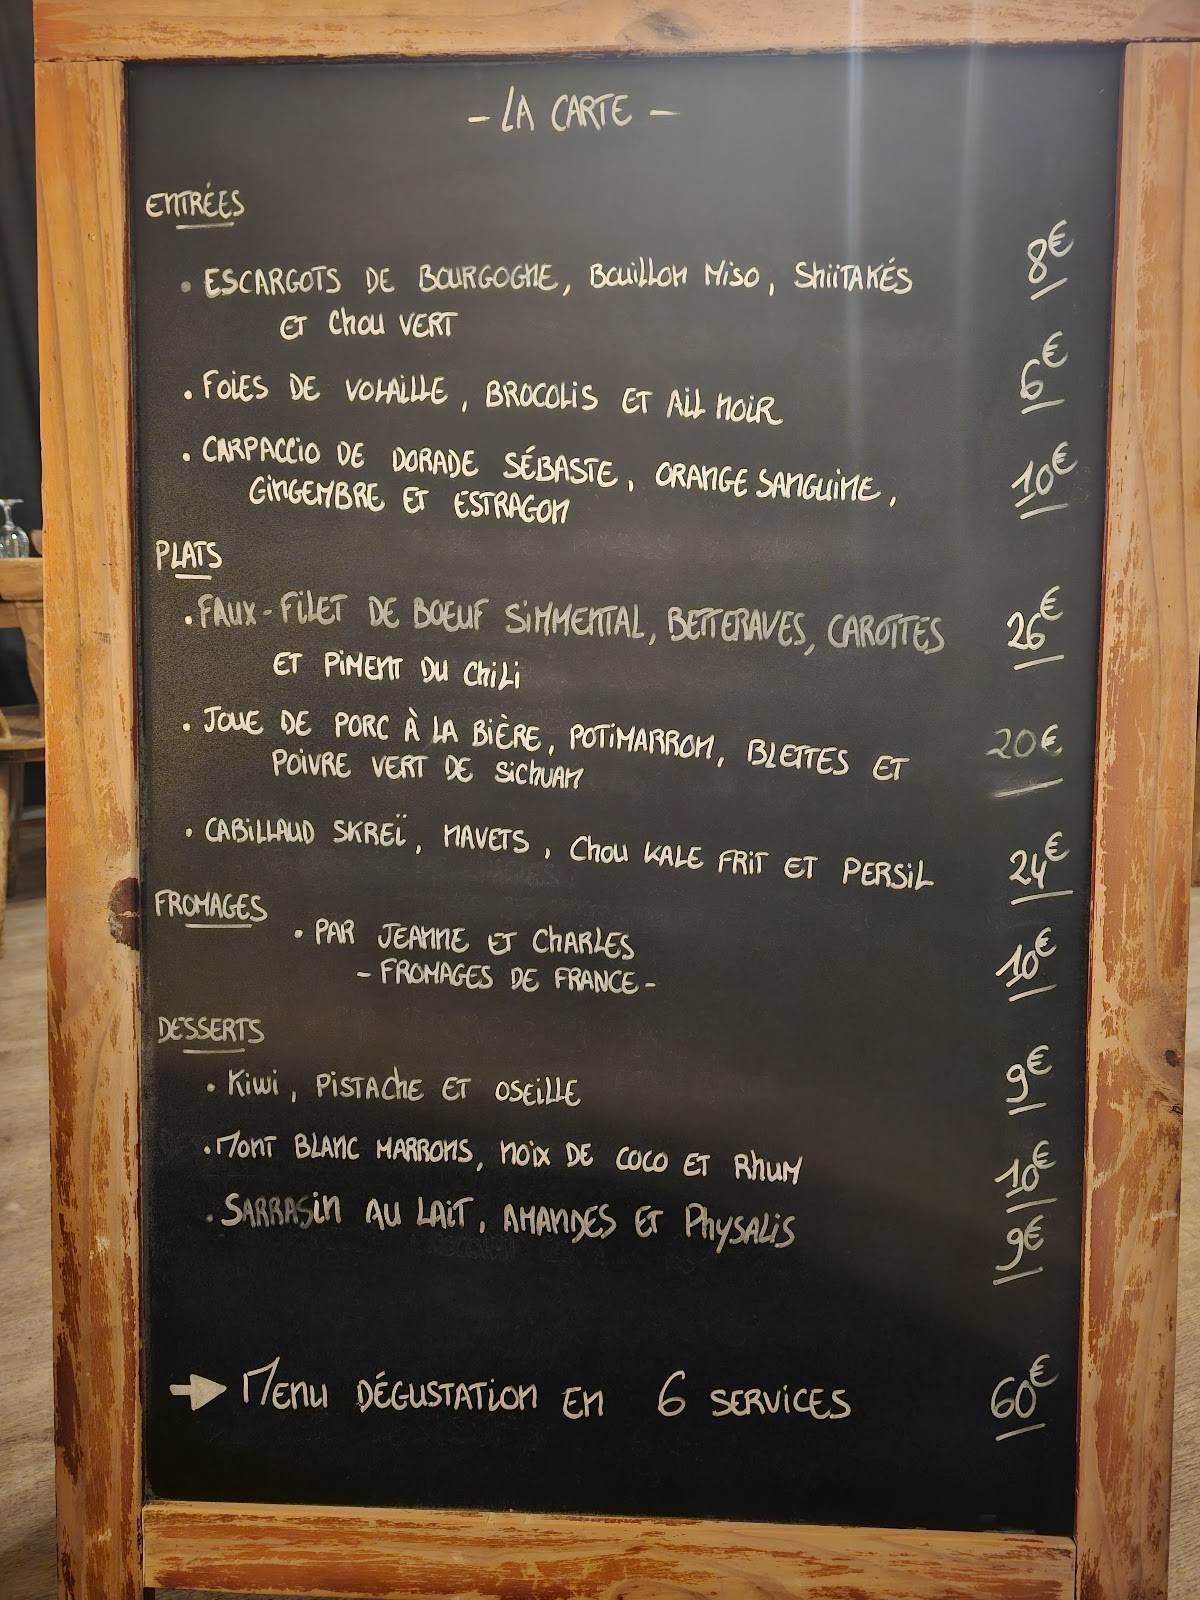 - LA CARTE -
ENTRÉES
• ESCARGOTS DE BOURGOGNE, Bouillon Miso, SHiiTAKÉS 8€
ET Chou VERT
• FOiES DE VOLAILLE, BROCOLIS ET AiL NOiR 6€
• CARPACCiO DE DORADE SÉBASTE, ORANGE SANGUINE, 10€
GiNGEMBRE ET ESTRAGON
PLATS
• FAUX-FiLET DE BOEUF SiMMENTAL, BETTERAVES, CAROTTES 26€
ET PiMENT DU ChiLi
• JOUE DE PORC À LA BiÈRE, POTiMARRON, BLETTES ET 20€
POiVRE VERT DE SiChUAN
• CABiLLAUD SKREÏ, NAVETS, Chou KALE FRiT ET PERSiL 24€
FROMAGES
• PAR JEANNE ET ChARLES 10€
- FROMAGES DE FRANCE -
DESSERTS
• Kiwi, PiSTAChE ET OSEiLLE 9€
• MONT BLANC MARRONS, NOiX DE COCO ET RhUM 10€
• SARRASiN AU LAiT, AMANDES ET PhYSALiS 9€
→ MENU DÉGUSTATiON EN 6 SERViCES 60€